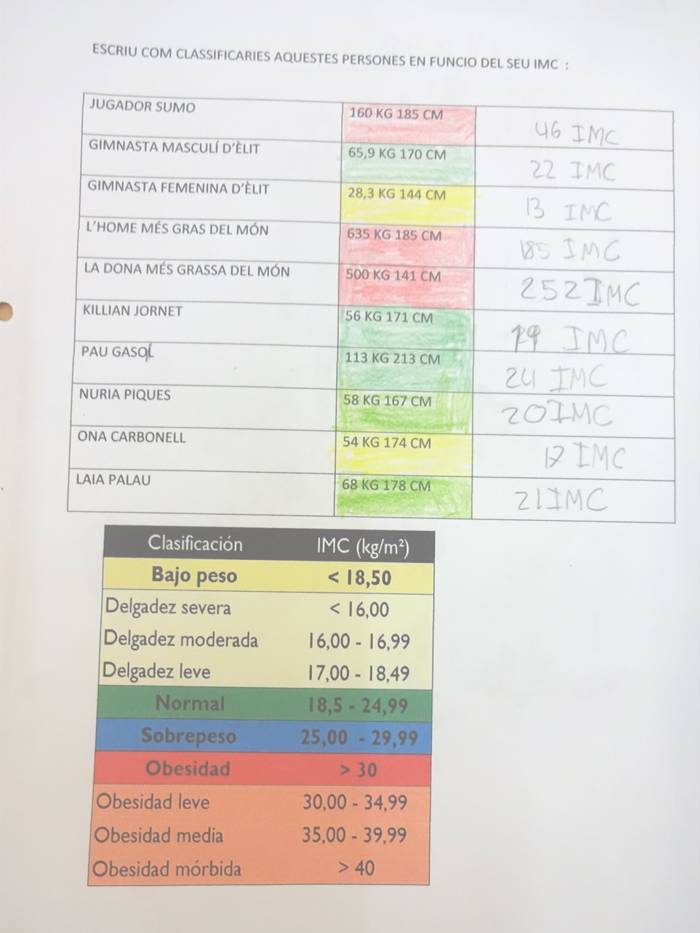 ESCRIU COM CLASSIFICARIES AQUESTES PERSONES EN FUNCIO DEL SEU IMC :
JUGADOR SUMO 160 KG 185 CM 46 IMC
GIMNASTA MASCULÍ D'ÈLIT 65,9 KG 170 CM 22 IMC
GIMNASTA FEMENINA D'ÈLIT 28,3 KG 144 CM 13 IMC
L'HOME MÉS GRAS DEL MÓN 635 KG 185 CM 185 IMC
LA DONA MÉS GRASSA DEL MÓN 500 KG 141 CM 252 IMC
KILLIAN JORNET 56 KG 171 CM 19 IMC
PAU GASOL 113 KG 213 CM 24 IMC
NURIA PIQUES 58 KG 167 CM 20 IMC
ONA CARBONELL 54 KG 174 CM 17 IMC
LAIA PALAU 68 KG 178 CM 21 IMC
Clasificación IMC (kg/m²)
Bajo peso < 18,50
Delgadez severa < 16,00
Delgadez moderada 16,00 - 16,99
Delgadez leve 17,00 - 18,49
Normal 18,5 - 24,99
Sobrepeso 25,00 - 29,99
Obesidad > 30
Obesidad leve 30,00 - 34,99
Obesidad media 35,00 - 39,99
Obesidad mórbida > 40